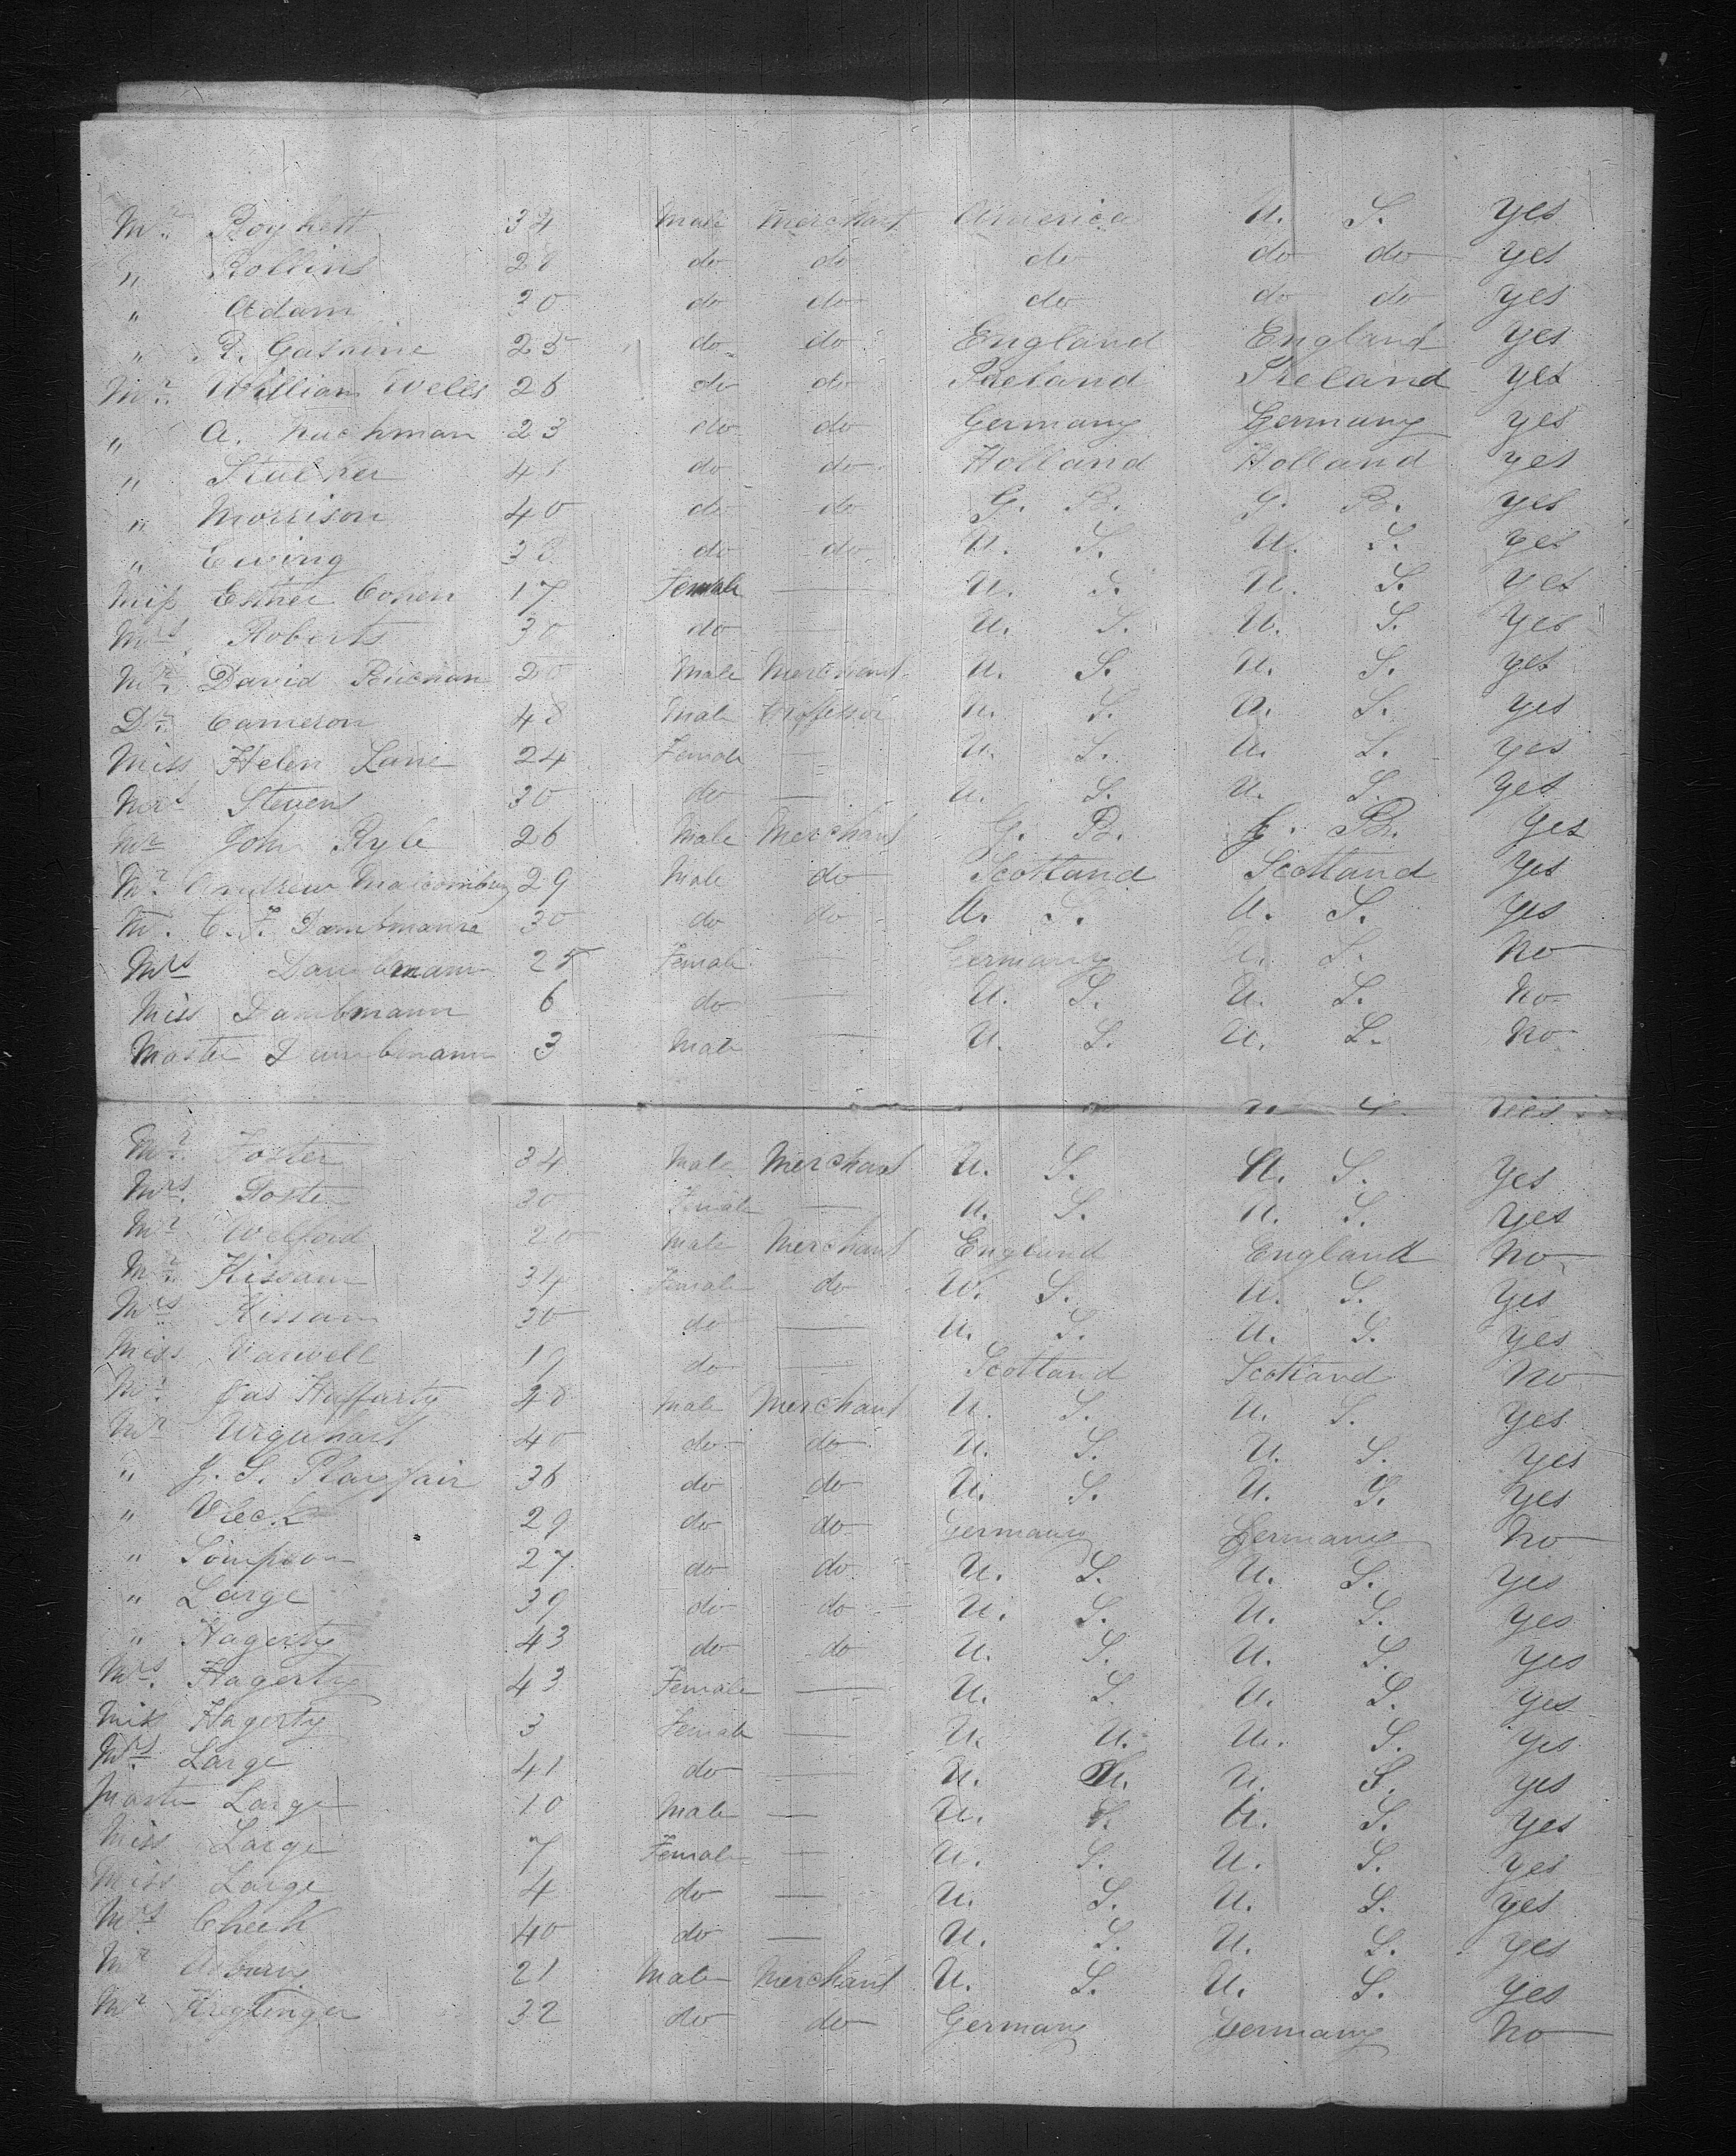 Mr. Boykett 34 Male Merchant America U. S. Yes
" Rollins 28 do do do do do yes
" Adam 30 do do do do do yes
" R. 25 do do England England Yes
Mr. William Wells 26 do do Ireland Ireland yes
" A. 23 do do Germany Germany yes
" 41 do do Holland Holland yes
" Morrison 40 do do G. B. G. B. Yes
" Ewing 38 do do U. S. U. S. yes
Miss Esther Cohen 17 Female — U. S. U. S. Yes
Mrs. Roberts 30 do — U. S. U. S. Yes
Mr. David 20 Male Merchant U. S. U. S. yes
Dr. Cameron 48 Male Professor U. S. U. S. yes
Miss Helen Lane 24 Female — U. S. U. S. yes
Mrs Stevens 30 do — U. S. U. S. Yes
Mr John Ryle 26 Male Merchant G. B. G. B. Yes
Mr. Andrew 29 Male do Scotland Scotland Yes
Mr. C. F. Dambmann 30 do do U. S. U. S. Yes
Mrs Dambmann 25 Female — Germany U. S. No
Miss Dambmann 6 do — U. S. U. S. No
Master Dambmann 3 Male — U. S. U. S. No
Mr. Foster 34 Male Merchant U. S. U. S. Yes
Mrs. Foster 30 Female — U. S. U. S. Yes
Mr Welford 20 Male Merchant England England No
Mr. Kissam 34 Female do U. S. U. S. Yes
Mrs Kissam 30 do — U. S. U. S. Yes
Miss 19 do — Scotland Scotland No
Mr. Jas Haffarty 48 Male Merchant U. S. U. S. Yes
Mr Urquhart 40 do do U. S. U. S. Yes
" J. S. Playfair 36 do do U. S. U. S. Yes
" Vleck 29 do do Germany Germany No
" 27 do do U. S. U. S. Yes
" Large 39 do do U. S. U. S. Yes
" Hagerty 43 do do U. S. U. S. Yes
Mrs. Hagerty 43 Female — U. S. U. S. Yes
Miss Hagerty 3 Female — U. U. U. S. Yes
Mrs. Large 41 do — U. U. U. S. Yes
Master Large 10 Male — U. S. U. S. Yes
Miss Large 7 Female — U. S. U. S. Yes
Miss Large 4 do — U. S. U. S. Yes
Mrs Cheek 40 do — U. S. U. S. Yes
Mr 21 Male Merchant U. S. U. S. Yes
Mr Kreglinger 32 do do Germany Germany No